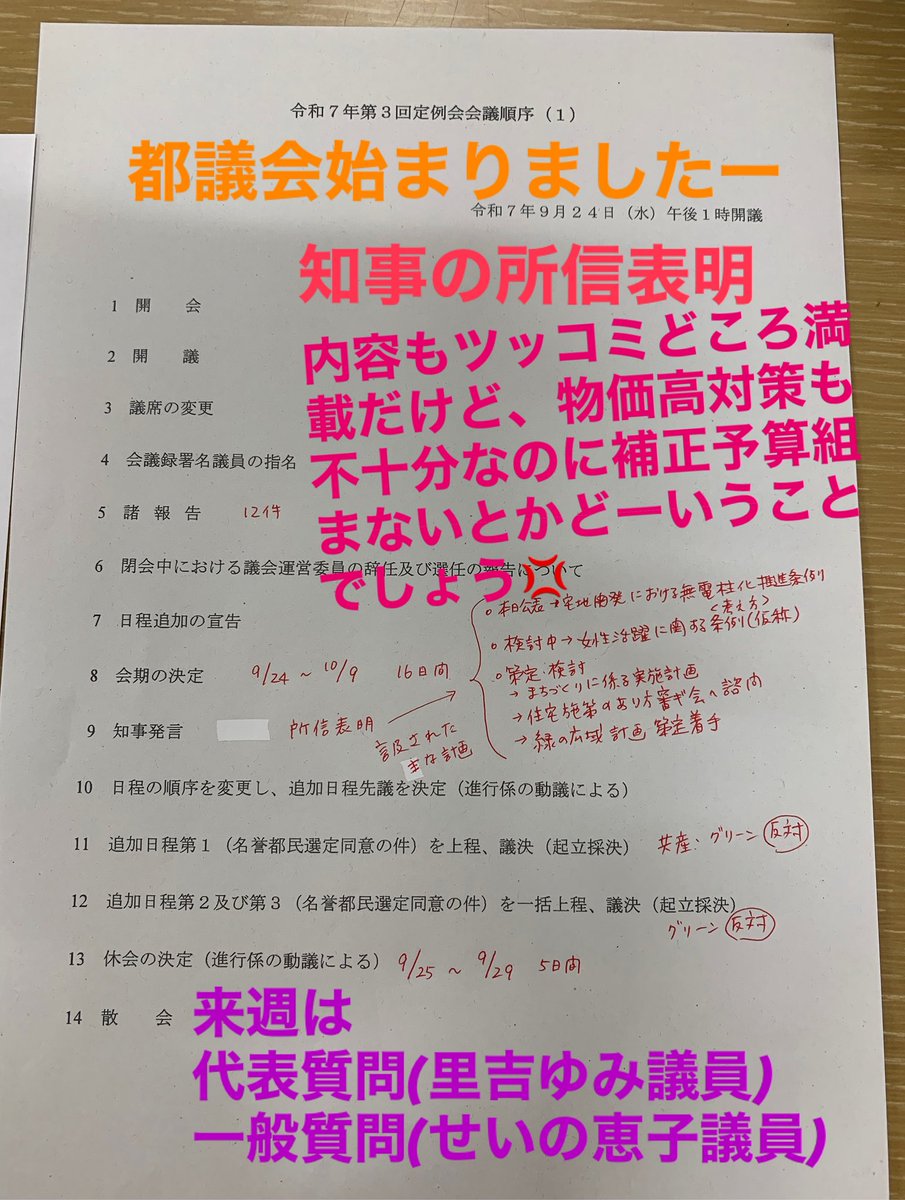 令和７年第３回定例会会議順序（１）
都議会始まりましたー
令和７年９月２４日（水）午後１時開議
知事の所信表明
内容もツッコミどころ満
載だけど、物価高対策も
不十分なのに補正予算組
まないとかどーいうこと
でしょう💢
1 開　会
2 開　議
3 議席の変更
4 会議録署名議員の指名
5 諸 報 告 12件
6 閉会中における議会運営委員の辞任及び選任の報告について
7 日程追加の宣告
8 会期の決定 9/24 ～ 10/9 16日間
9 知事発言 所信表明 →
言及された
主な計画
○本日公表→宅地開発における無電柱化推進条例
<考え方>
○検討中→女性活躍に関する条例(仮称)
○策定・検討
→まちづくりに係る実施計画
→住宅施策のあり方審ギ会へ諮問
→緑の広域計画 策定着手
10 日程の順序を変更し、追加日程先議を決定（進行係の動議による）
11 追加日程第１（名誉都民選定同意の件）を上程、議決（起立採決） 共産・グリーン 反対
12 追加日程第２及び第３（名誉都民選定同意の件）を一括上程、議決（起立採決）
グリーン 反対
13 休会の決定（進行係の動議による） 9/25 ～ 9/29 5日間
14 散　会
来週は
代表質問(里吉ゆみ議員)
一般質問(せいの恵子議員)